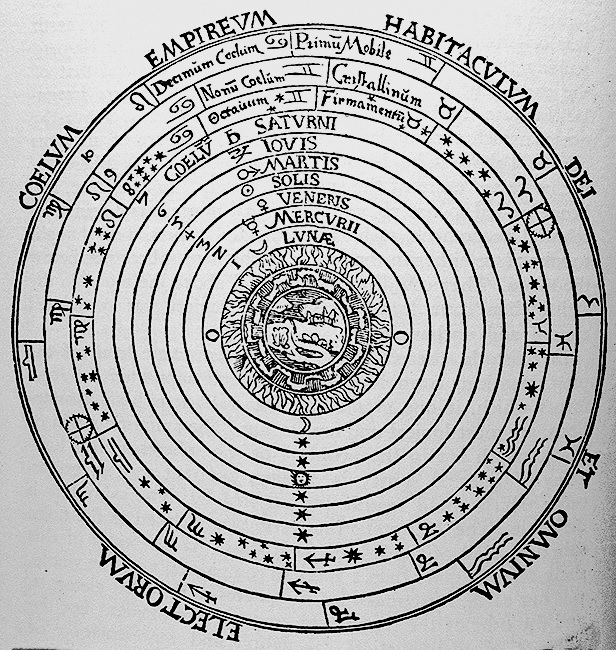 COELVM EMPIREVM HABITACVLVM DEI ET OMNIVM ELECTORVM
Decimum Coelum ♋ Primũ Mobile ♊
9 ♋ Nonũ Coelum ♊ Cristallinum ♉
8 ♋ Octauum ♊ Firmamentũ ♉
7 COELV ♄ SATVRNI
6 ♃ IOVIS
5 ♂ MARTIS
4 ☉ SOLIS
3 ♀ VENERIS
2 ☿ MERCVRII
1 ☽ LVNÆ